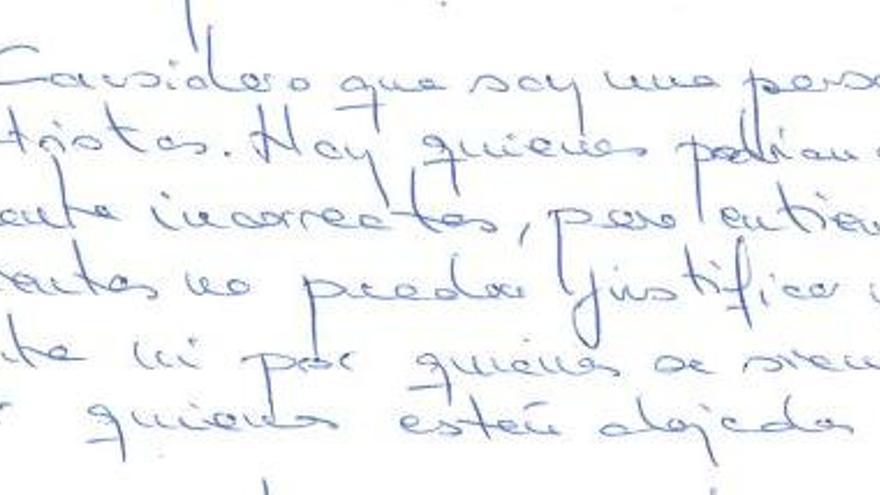 Considero que soy una perso
tristas. Hay quienes podrían
ante incorrectas, pero entien
entas no puedan justificar
te ni por quienes se sien
quienes estén alojados